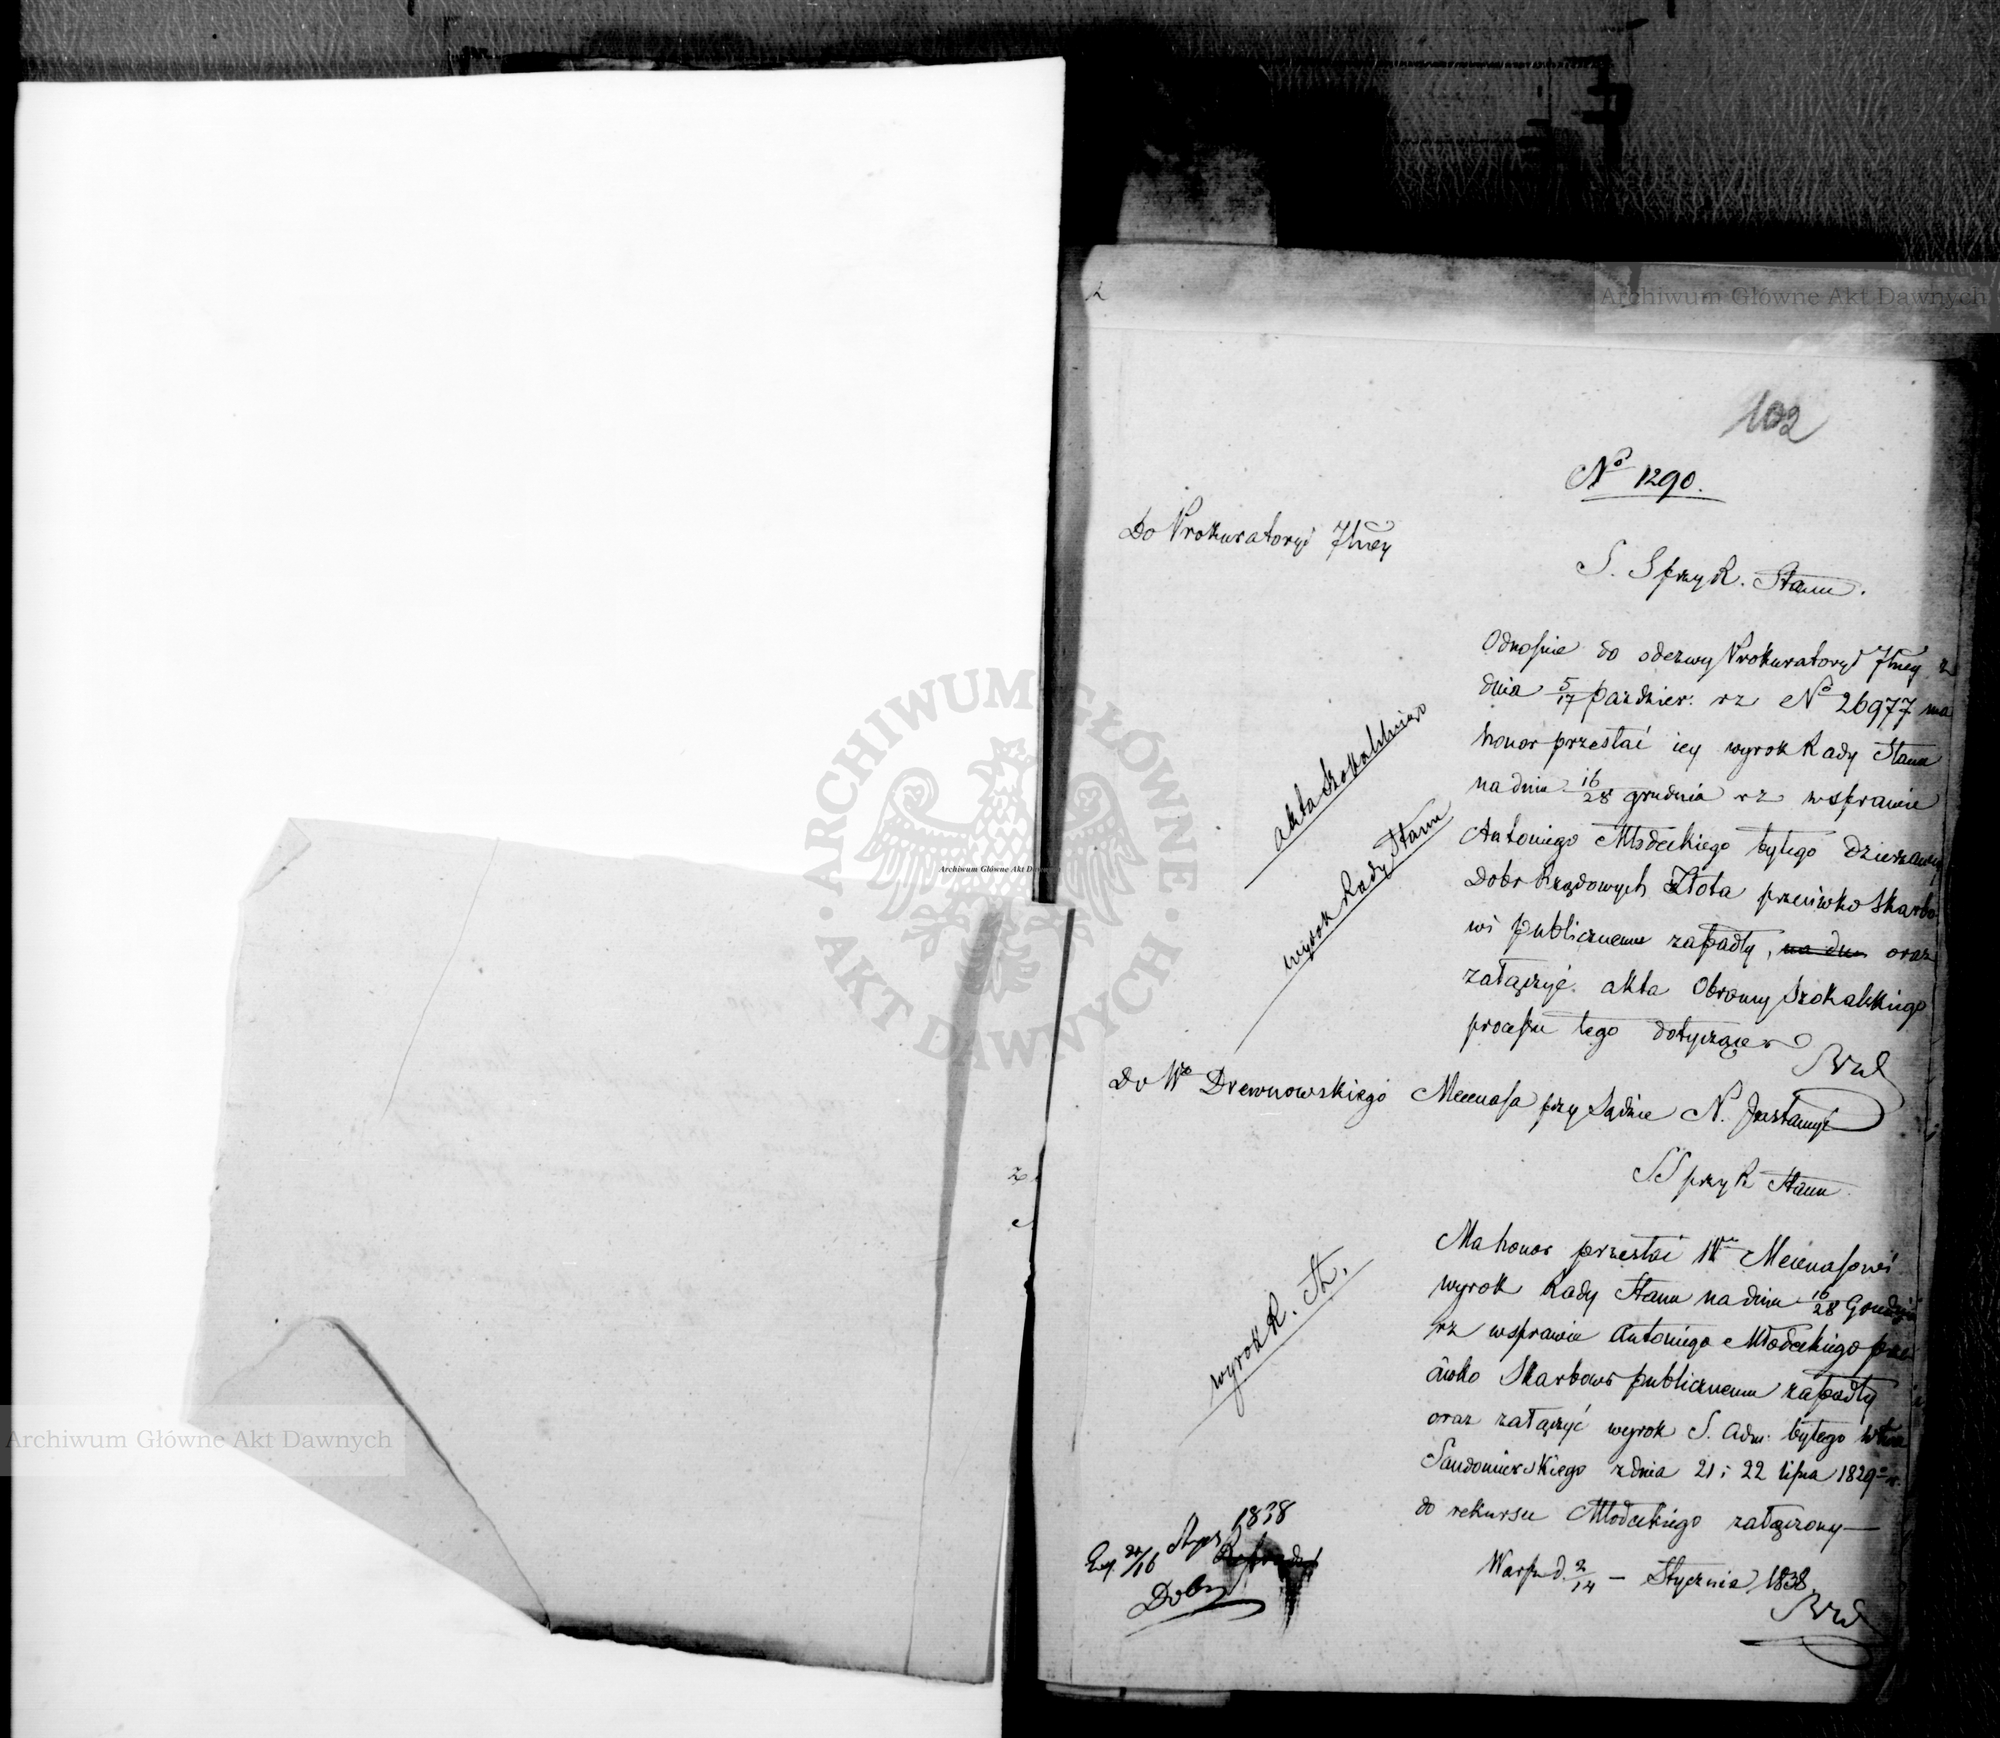 102
No 1290.
Do Prokuratoryi Jlney
S. S przy R. Stanu.
Odnośnie do odezwy Prokuratoryi Jlney z
dnia 5/17 Paździer: rz No 26977 ma
honor przesłać iey wyrok Rady Stanu
na dniu 16/28 grudnia rz w sprawie
Antoniego Młodeckiego byłego dzierżawcy
Dobr Rządowych Złota przeciwko Skarbo
wi publicznemu zapadły, na dn oraz
załączyć akta Obrony Szokalskiego
processu tego dotyczące
akta Szokalskiego
wyrok Rady Stanu
Do Wo Drewnowskiego Mecenasa przy Sądzie N. Instancyi
S S przy R Stanu
Ma honor przesłać Wu Mecenasowi
wyrok Rady Stanu na dniu 16/28 Grudnia
rz w sprawie Antoniego Młodeckiego prze
ciwko Skarbowi publicznemu zapadły
oraz załączyć wyrok S. Adm: byłego Wtwa
Sandomierskiego z dnia 21 i 22 lipca 1829 r.
do rekursu Młodeckiego załączony—
wyrok R. St.
Warsz d. 2/14 — Stycznia 1838
1838
Archiwum Główne Akt Dawnych
Archiwum Główne Akt Dawnych
Archiwum Główne Akt Dawnych
ARCHIWUM GŁÓWNE
AKT DAWNYCH